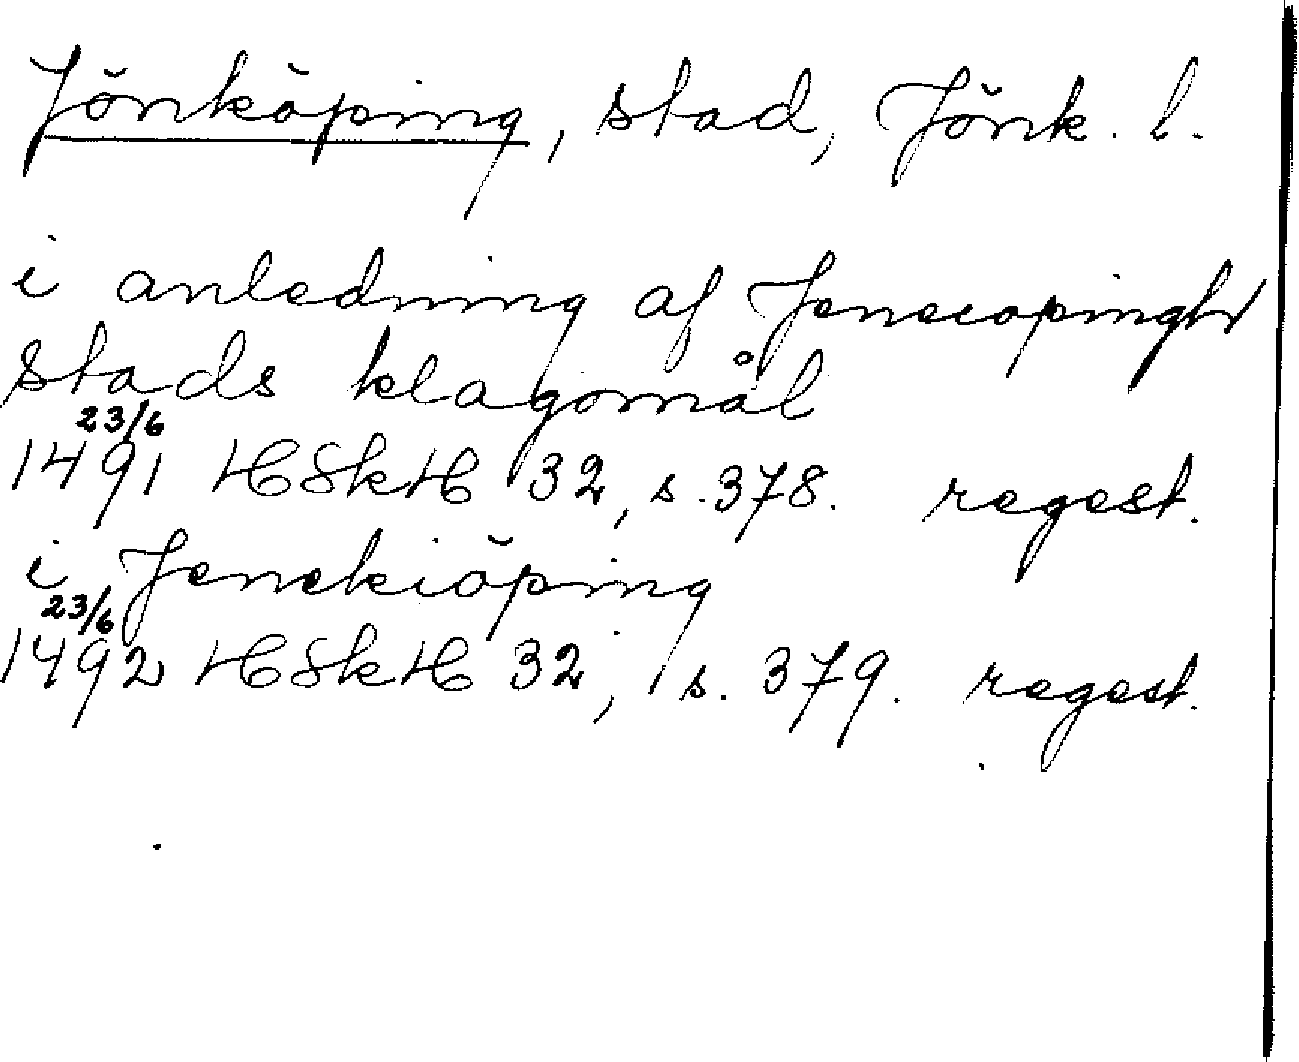 Jönköping, stad, Jönk. l.
i anledning af Jenecopingh
stads klagomål
23/6
1491 HSkH 32, s. 378. regest.
i Jenekiöping
23/6
1492 HSkH 32, s. 379. regest.